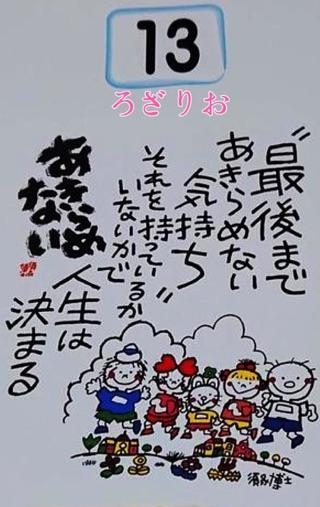 13
ろざりお
"最後まで
あきらめない
気持ち"
それを持っているか
いないかで
人生は
決まる
あきらめ
ない
須永博士